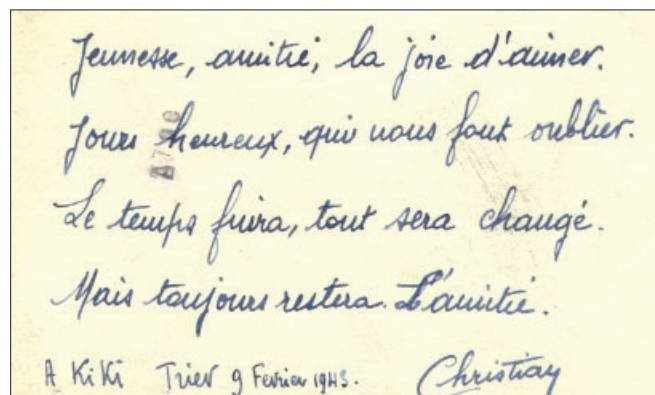 Jeunesse, amitié, la joie d'aimer.
Jours heureux, qui nous font oublier.
Le temps fuira, tout sera changé.
Mais toujours restera. L'amitié.
A KiKi Trier 9 Fevrier 1943. Christian